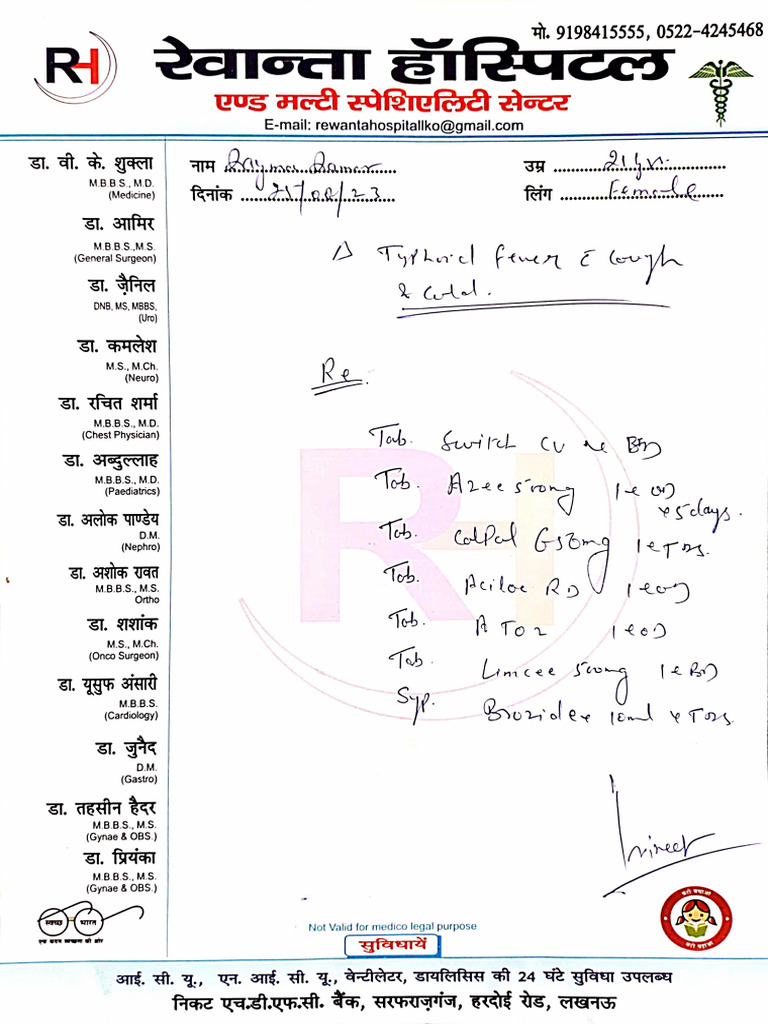 मो. 9198415555, 0522-4245468
RH
रेवान्ता हॉस्पिटल
एण्ड मल्टी स्पेशिएलिटी सेन्टर
E-mail: rewantahospitallko@gmail.com
डा. वी. के. शुक्ला
M.B.B.S., M.D.
(Medicine)
डा. आमिर
M.B.B.S.,M.S.
(General Surgeon)
डा. ज़ैनिल
DNB, MS, MBBS,
(Uro)
डा. कमलेश
M.S., M.Ch.
(Neuro)
डा. रचित शर्मा
M.B.B.S., M.D.
(Chest Physician)
डा. अब्दुल्लाह
M.B.B.S., M.D.
(Paediatrics)
डा. अलोक पाण्डेय
D.M.
(Nephro)
डा. अशोक रावत
M.B.B.S., M.S.
Ortho
डा. शशांक
M.S., M.Ch.
(Onco Surgeon)
डा. यूसुफ अंसारी
M.B.B.S.
(Cardiology)
डा. जुनैद
D.M.
(Gastro)
डा. तहसीन हैदर
M.B.B.S., M.S.
(Gynae & OBS.)
डा. प्रियंका
M.B.B.S., M.S.
(Gynae & OBS.)
नाम
उम्र 21 yr.
दिनांक
लिंग Female
Typhoid fever c cough
& cold.
Re.
Tab. Switch CV BD
Tab. Azee 500mg 1 x OD x 5 days.
Tab. CalPal 650mg 1 x TDS.
Tab. Aciloc RD 1 x OD
Tab. A TO Z 1 x OD
Tab. Limcee 500mg 1 x BD
Syp. Brozidex 10ml x TDS.
Vineet
स्वच्छ भारत
एक कदम स्वच्छता की ओर
Not Valid for medico legal purpose
सुविधायें
बेटी बचाओ
बेटी पढ़ाओ
आई. सी. यू., एन. आई. सी. यू., वेन्टीलेटर, डायलिसिस की 24 घंटे सुविधा उपलब्ध
निकट एच.डी.एफ.सी. बैंक, सरफराज़गंज, हरदोई रोड, लखनऊ